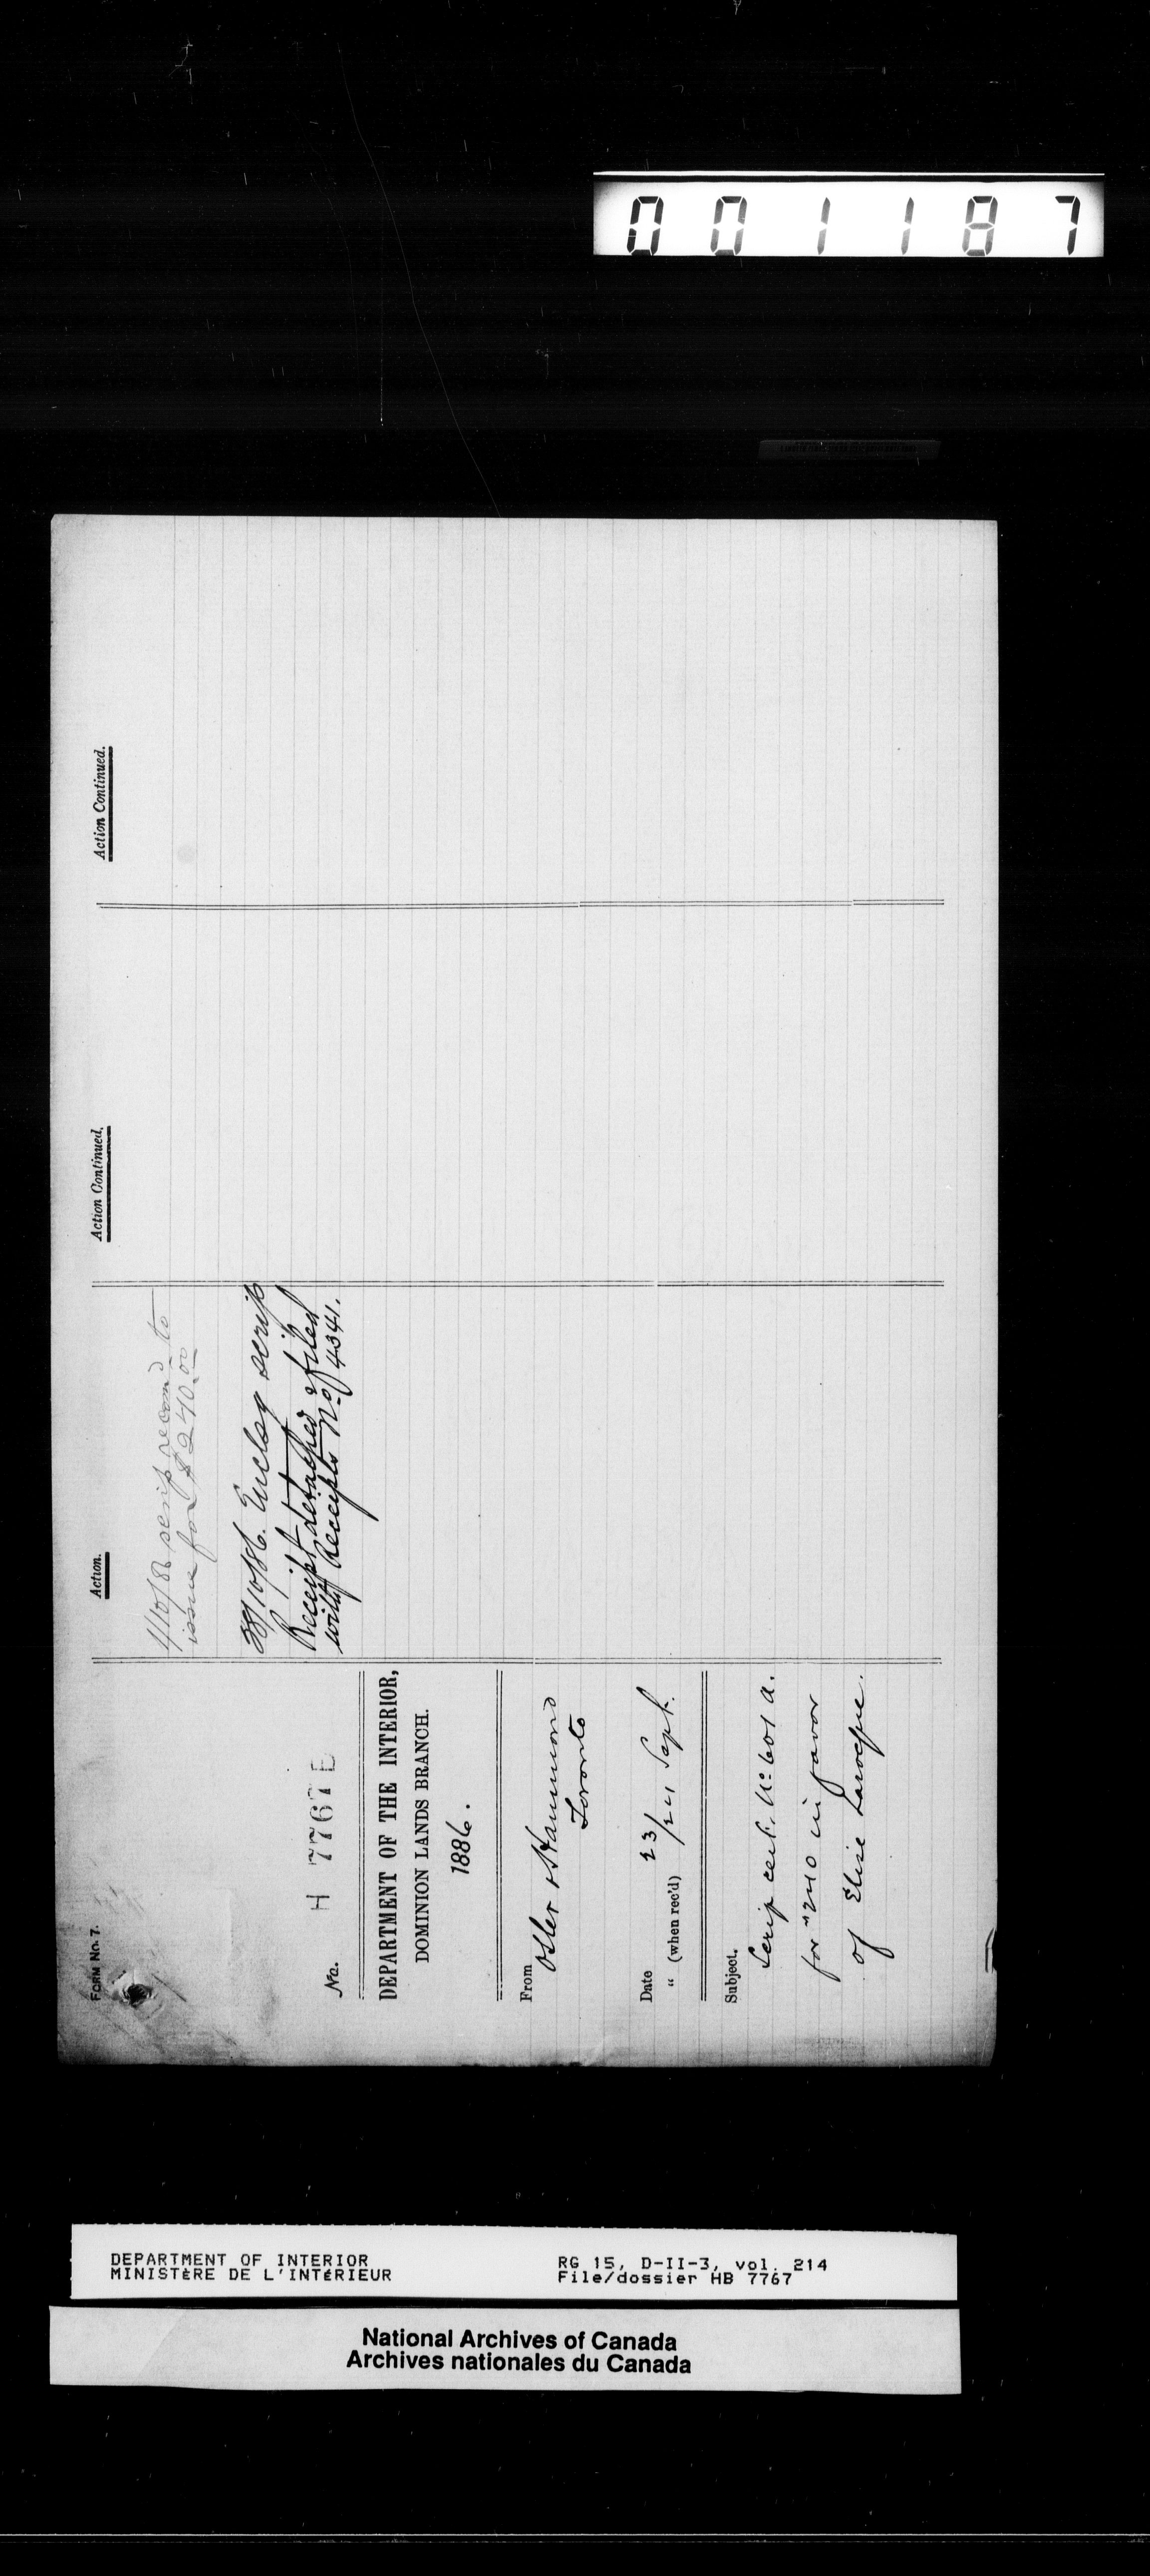 001187
FORM No. 7.
No. H 7767 B
DEPARTMENT OF THE INTERIOR,
DOMINION LANDS BRANCH.
1886.
From Osler & Hammond
Toronto
Date 23/
" (when rec'd) 24 Sept.
Subject.
Scrip cert. No. 601 A.
for $240 in favor
of Elise Larocque.
Action.
4/10/86 scrip recomd to
issue for $240.00
10/86. Enclsg scrip
Receipt detached & filed
with Receipts No of 4341.
Action Continued.
Action Continued.
DEPARTMENT OF INTERIOR
MINISTÈRE DE L'INTÉRIEUR
RG 15, D-II-3, vol. 214
File/dossier HB 7767
National Archives of Canada
Archives nationales du Canada